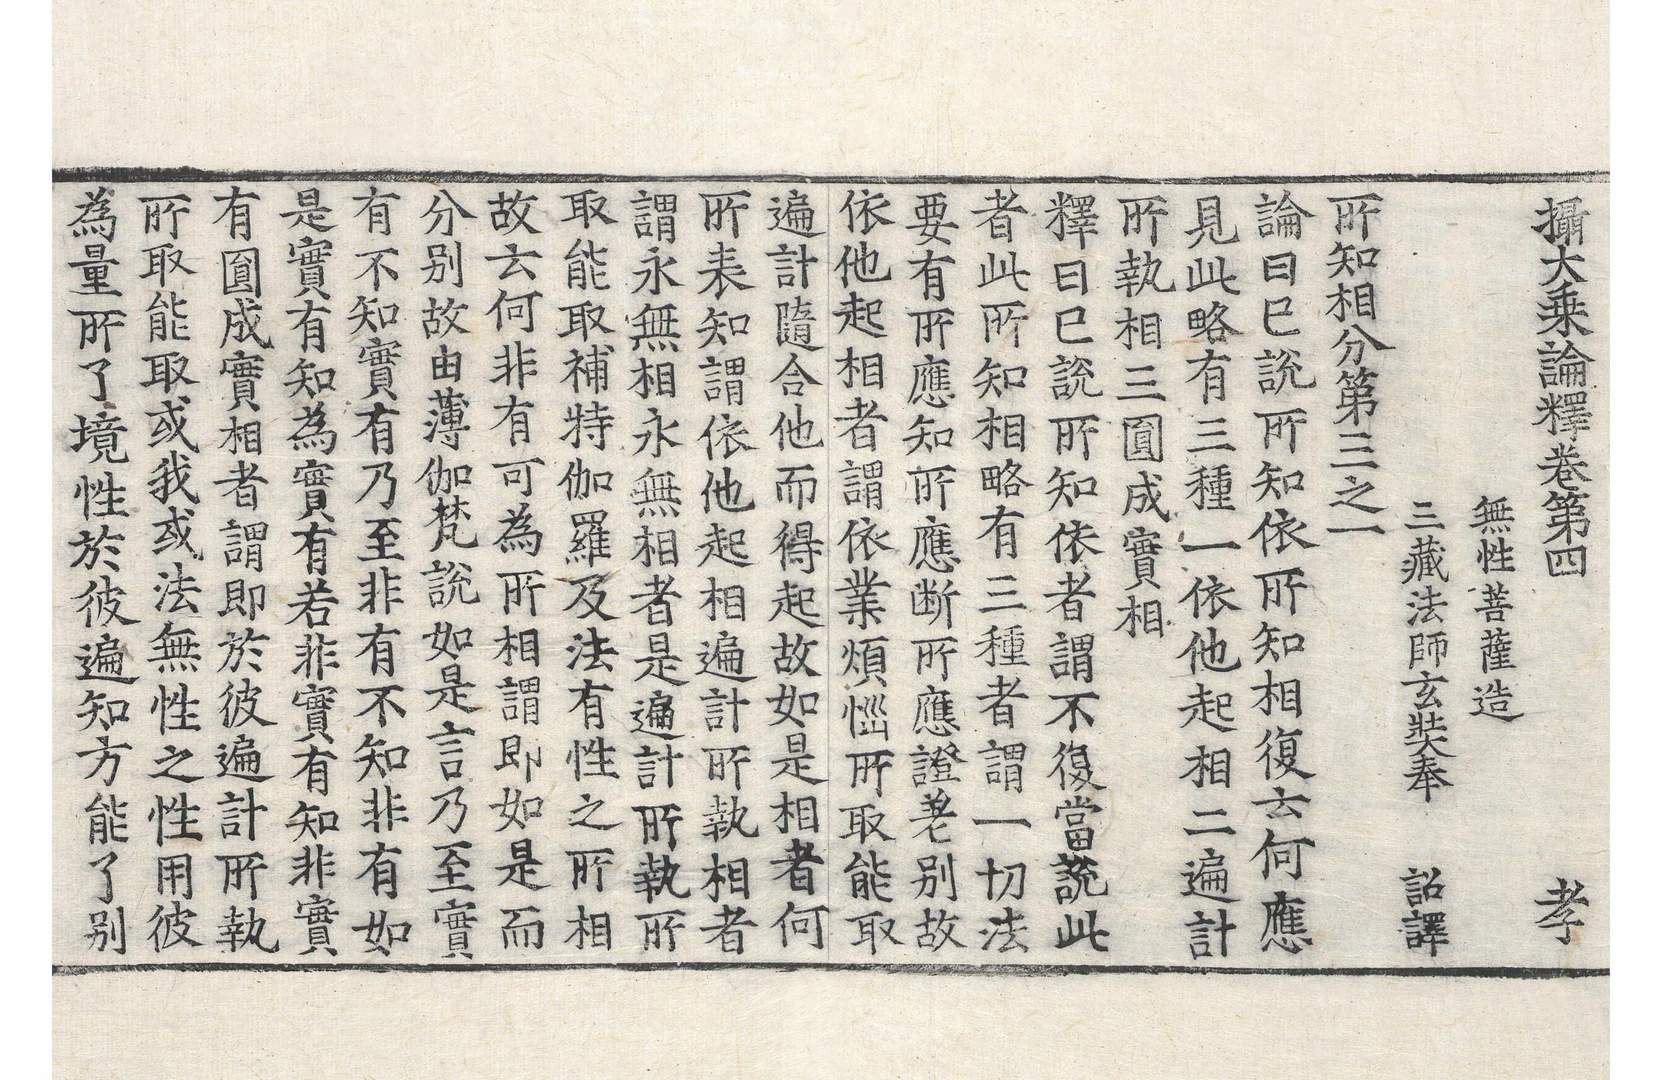 攝大乘論釋卷第四 孝
無性菩薩造
三藏法師玄奘奉 詔譯
所知相分第三之一
論曰已說所知依所知相復云何應
見此略有三種一依他起相二遍計
所執相三圎成實相
釋曰已說所知依者謂不復當說此
者此所知相略有三種者謂一切法
要有所應知所應断所應證差别故
依他起相者謂依業煩惱所取能取
遍計隨合他而得起故如是相者何
所表知謂依他起相遍計所執相者
謂永無相永無相者是遍計所執所
取能取補特伽羅及法有性之所相
故云何非有可為所相謂即如是而
分别故由薄伽梵說如是言乃至實
有不知實有乃至非有不知非有如
是實有知為實有若非實有知非實
有圎成實相者謂即於彼遍計所執
所取能取或我或法無性之性用彼
為量所了境性於彼遍知方能了别